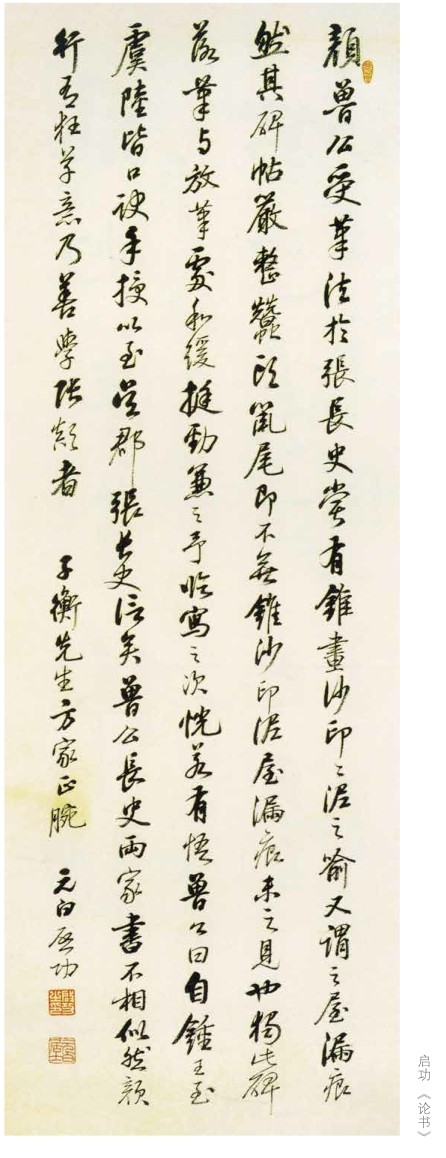 顏魯公受筆法於張長史嘗有錐畫沙印印泥之喻又謂之屋漏痕
然其碑帖嚴整蠶頭鼠尾即不無錐沙印泥屋漏痕未之見也獨此碑
落筆與放筆處和緩挺勁兼之予臨寫之次恍若有悟魯公曰自鍾王至
虞陸皆口訣手授以至吳郡張長史信矣魯公長史兩家書不相似然顏
行有狂草意乃善學張顛者 子衡先生方家正腕 元白啟功
启功《论书》